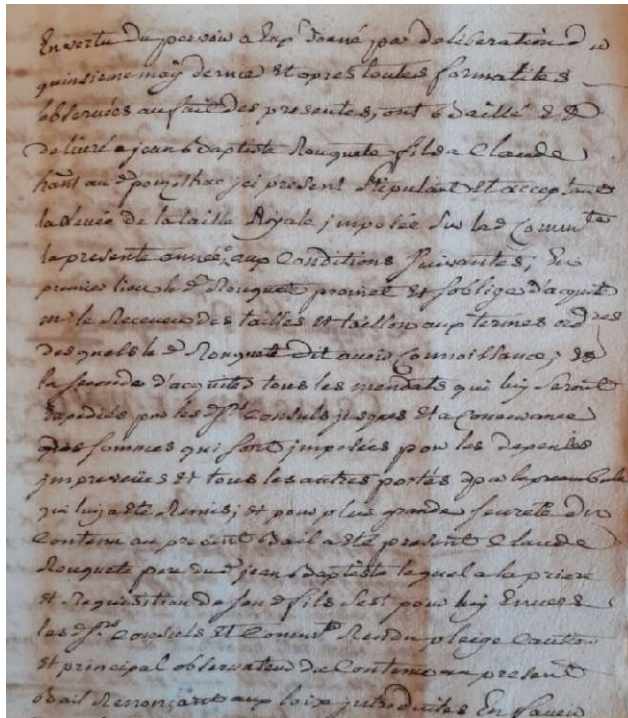 En vertu du pouvoir a Eux donné par deliberation du
quinsieme may dernier et apres toutes formalites
observées au fait des presentes, ont baillé et
delivré a jean baptiste Rouquete fils a Claude
hant au dt pomithac jci present stipulant et acceptant
la Levée de la taille Royale jmposée sur lad Commte
la presente année, aux Conditions suivantes; En
premier lieu le dt Rouquete promet et soblige d'acquiter
mr le Receveur des tailles et taillon aux termes ordres
desquels le dt Rouquete dit avoir Connoissance; et
la seconde d'acquiter tous les mandats qui luy seront
Expediés par les dsrs Consuls jusques et a Concurance
des sommes qui sont jmposées pour les depenses
jmpreveües et tous les autres portés par le preambule
qui luy a eté Remis; et pour plus grande seureté du
Contenu au present bail a eté present Claude
Rouquete pere dud jean baptiste lequel a la priere
et Requisition de son d fils s'est pour luy Envers
les dsrs Consuls et Commte Rendu pleige Caution
et principal observateur du Contenu au present
bail Renonçant aux loix jntroduites En faveur